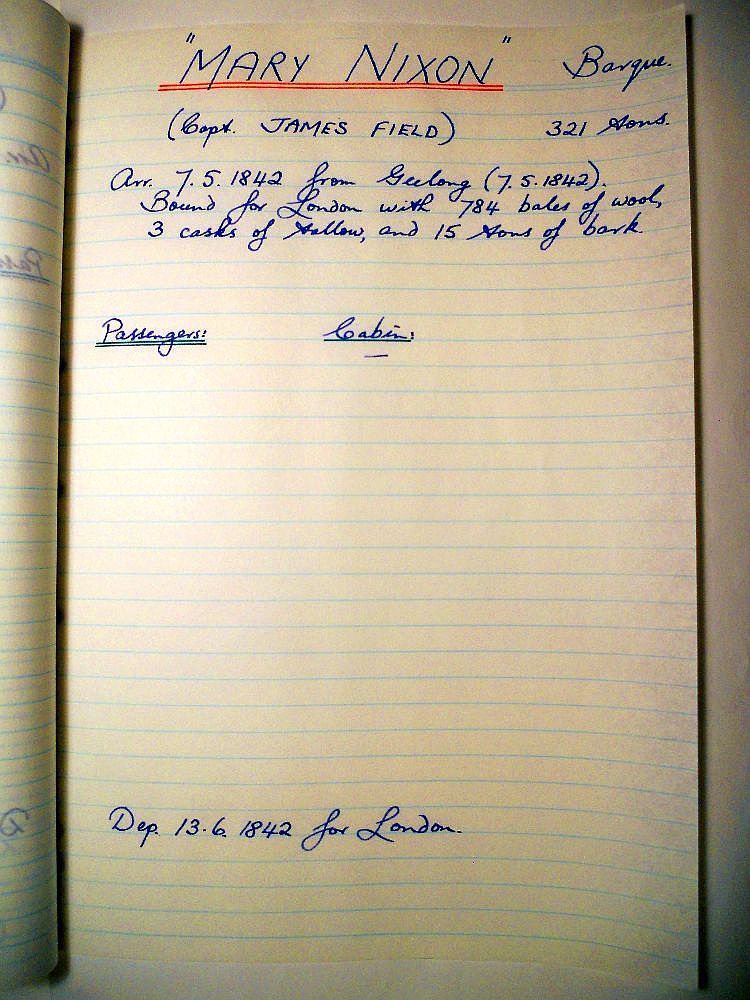 "MARY NIXON" Barque.
(Capt. JAMES FIELD) 321 tons.
Arr. 7.5.1842 from Geelong (7.5.1842).
Bound for London with 784 bales of wool,
3 casks of tallow, and 15 tons of bark.
Passengers: Cabin:
—
Dep. 13.6.1842 for London.